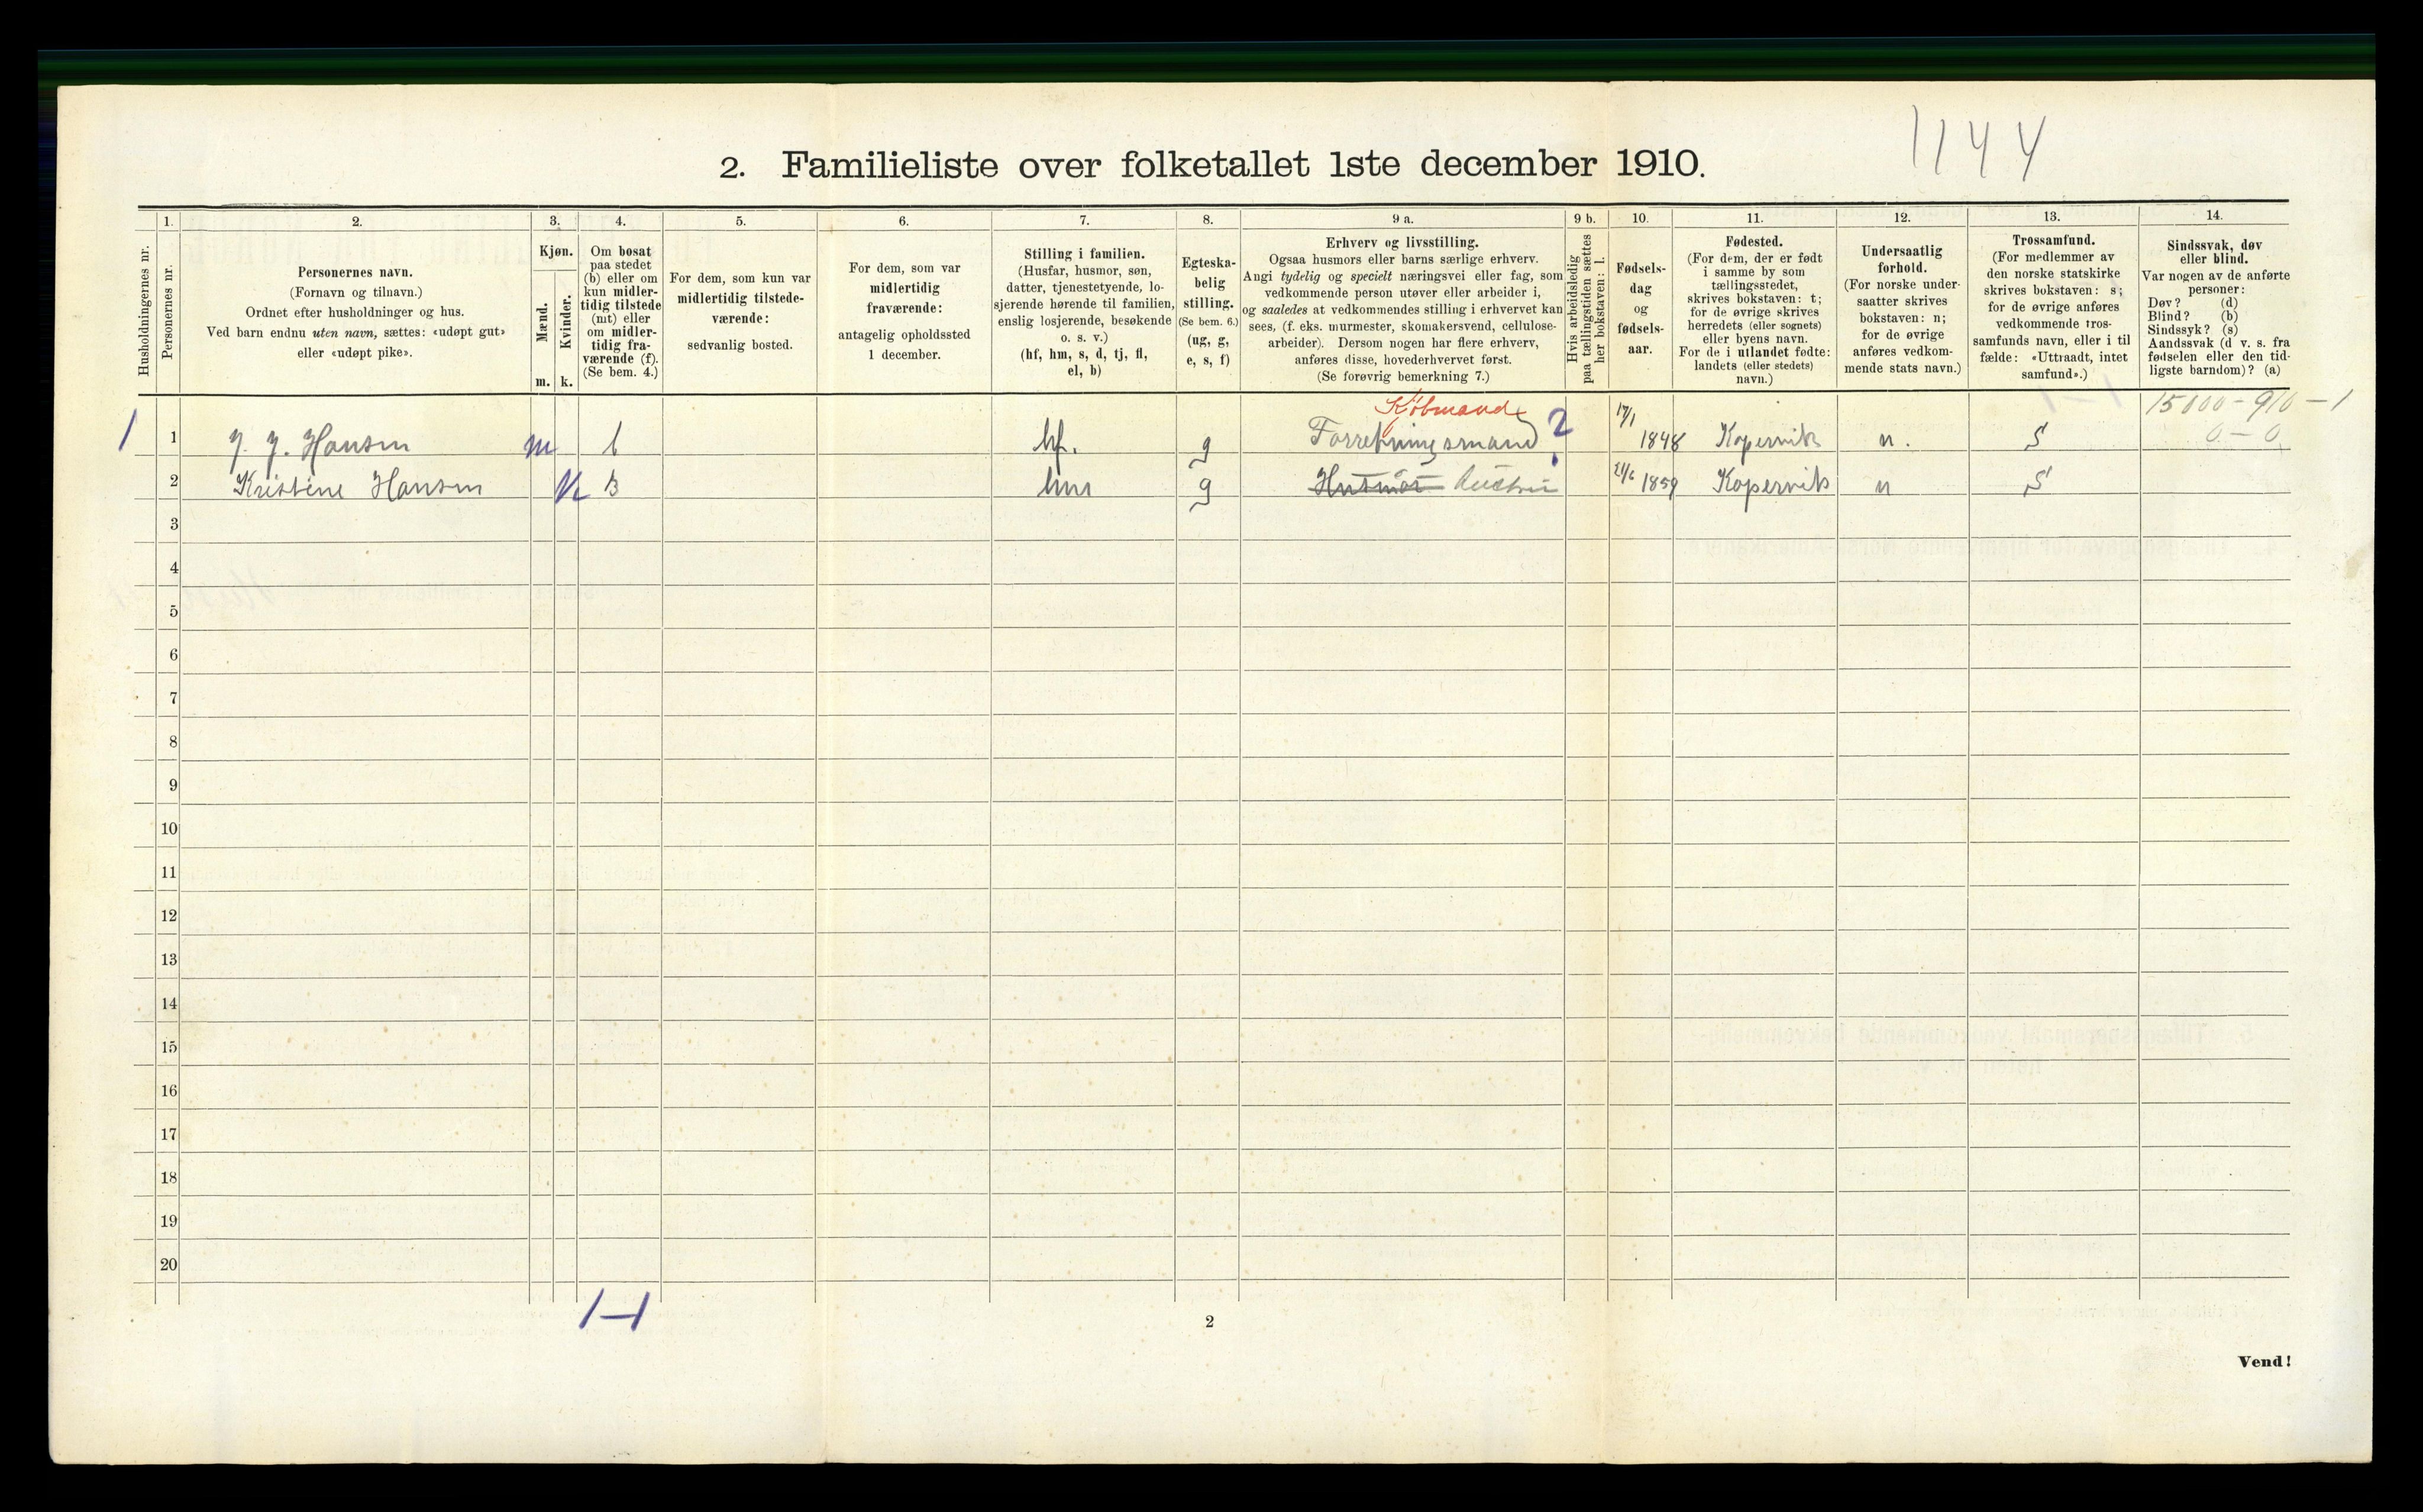 1144
2. Familieliste over folketallet 1ste december 1910.
Husholdningernes nr.
1.
Personernes nr.
2.
Personernes navn.
(Fornavn og tilnavn.)
Ordnet efter husholdninger og hus.
Ved barn endnu uten navn, sættes: «udøpt gut»
eller «udøpt pike».
3.
Kjøn.
Mænd.
Kvinder.
m. k.
4.
Om bosat
paa stedet
(b) eller om
kun midler-
tidig tilstede
(mt) eller
om midler-
tidig fra-
værende (f).
(Se bem. 4.)
5.
For dem, som kun var
midlertidig tilstede-
værende:
sedvanlig bosted.
6.
For dem, som var
midlertidig
fraværende:
antagelig opholdssted
1 december.
7.
Stilling i familien.
(Husfar, husmor, søn,
datter, tjenestetyende, lo-
sjerende hørende til familien,
enslig losjerende, besøkende
o. s. v.)
(hf, hm, s, d, tj, fl,
el, b)
8.
Egteska-
belig
stilling.
(Se bem. 6.)
(ug, g,
e, s, f)
9 a.
Erhverv og livsstilling.
Ogsaa husmors eller barns særlige erhverv.
Angi tydelig og specielt næringsvei eller fag, som
vedkommende person utøver eller arbeider i,
og saaledes at vedkommendes stilling i erhvervet kan
sees, (f. eks. murmester, skomakersvend, cellulose-
arbeider). Dersom nogen har flere erhverv,
anføres disse, hovederhvervet først.
(Se forøvrig bemerkning 7.)
9 b.
Hvis arbeidsledig
paa tællingstiden sættes
her bokstaven: l.
10.
Fødsels-
dag
og
fødsels-
aar.
11.
Fødested.
(For dem, der er født
i samme by som
tællingsstedet,
skrives bokstaven: t;
for de øvrige skrives
herredets (eller sognets)
eller byens navn.
For de i utlandet fødte:
landets (eller stedets)
navn.)
12.
Undersaatlig
forhold.
(For norske under-
saatter skrives
bokstaven: n;
for de øvrige
anføres vedkom-
mende stats navn.)
13.
Trossamfund.
(For medlemmer av
den norske statskirke
skrives bokstaven: s;
for de øvrige anføres
vedkommende tros-
samfunds navn, eller i til
fælde: «Uttraadt, intet
samfund».)
14.
Sindssvak, døv
eller blind.
Var nogen av de anførte
personer:
Døv? (d)
Blind? (b)
Sindssyk? (s)
Aandssvak (d v. s. fra
fødselen eller den tid-
ligste barndom)? (a)
Købmand
15000-910-1
0-0
1 1 J. J. Hansen m b hf. g Forretningsmand ? 17/1 1848 Kopervik n. S
2 Kristine Hansen k B hm g Husmor Hustru 21/6 1859 Kopervik n S
3
4
5
6
7
8
9
10
11
12
13
14
15
16
17
18
19
20
1-1
2
Vend!